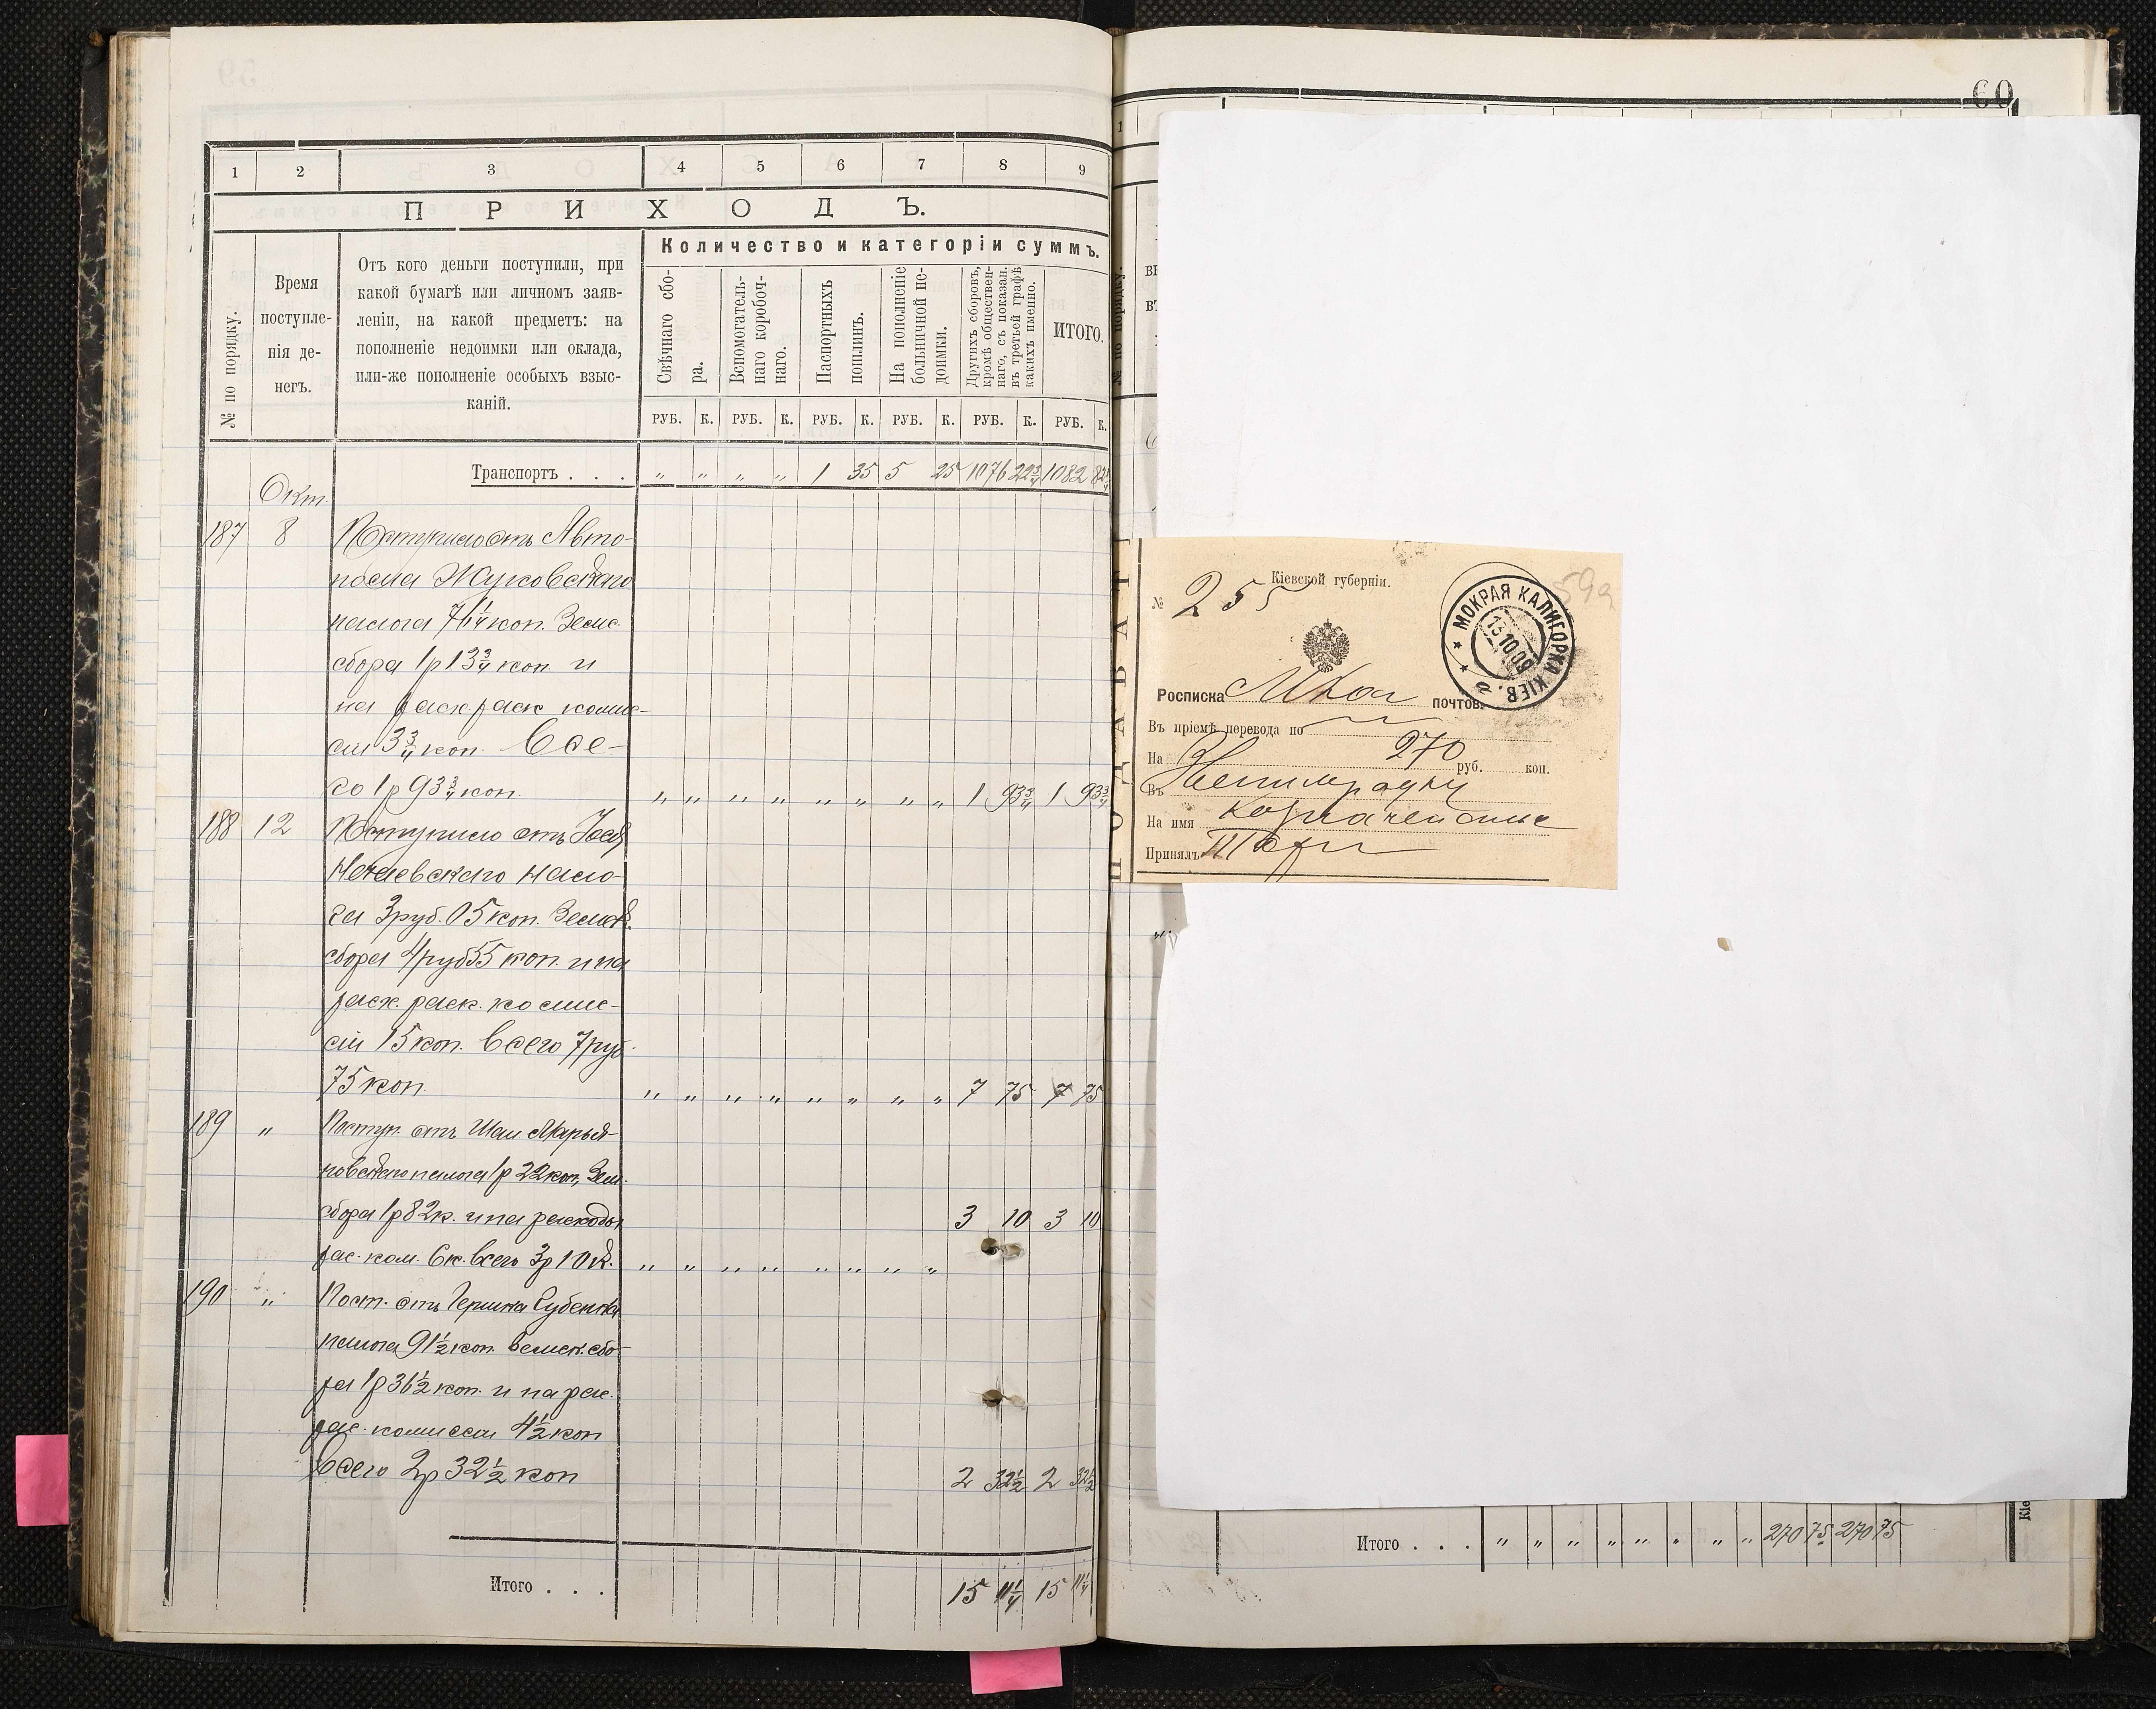 60
1 2 3 4 5 6 7 8 9
ПРИХОДЪ.
№ по порядку.
Время поступле-
нія де-
негъ.
Отъ кого деньги поступили, при
какой бумагѣ или личномъ заяв-
леніи, на какой предметъ: на
пополненіе недоимки или оклада,
или-же пополненіе особыхъ взыс-
каній.
Количество и категоріи суммъ.
Свѣчнаго сбо-
ра.
Вспомогатель-
наго коробоч-
наго.
Паспортныхъ
пошлинъ.
На пополненіе
больничной не-
доимки.
Другихъ сборовъ,
кромѣ обществен-
наго, съ показан.
въ третьей графѣ
какихъ именно.
ИТОГО.
РУБ. К. РУБ. К. РУБ. К. РУБ. К. РУБ. К. РУБ. К.
Транспортъ . . . „ „ „ „ 1 35 5 25 1076 22¾ 1082 82¾
Окт.
187 8 Поступило отъ Авто-
нома Жуковскаго
налога 76¼ коп. Земс.
сбора 1р 13¾ коп. и
на расх. раск комис-
сіи 3¾ коп. Все-
го 1р 93¾ коп. „ „ „ „ „ „ „ „ 1 93¾ 1 93¾
188 12 Поступило отъ Іося
Нечаевскаго нало-
га 3 руб. 05 коп. Земск.
сбора 4 руб 55 коп. и на
расх. раск. комис-
сіи 15 коп. Всего 7 руб.
75 коп. „ „ „ „ „ „ „ „ 7 75 7 75
189 „ Поступ. отъ Шаи Марья-
новскаго налога 1р 22 коп, Зем.
сбора 1р 82 к. и на расходы 3 10 3 10
рас. ком. 6 к. Всего 3р 10 к. „ „ „ „ „ „ „ „
190 „ Пост. отъ Герша
налога 91½ коп. Земск. сбо-
ра 1р 36½ коп. и на рас.
рас. комиссіи 4½ коп
Всего 2р 32½ коп 2 32½ 2 32½
Итого . . . 15 11¼ 15 11¼
59а
Кіевской губерніи.
№ 255
МОКРАЯ КАЛИГОРКА КІЕВ.
13 10 09
Росписка МКал почтов.
Въ пріемѣ перевода по
На 270 руб. коп.
Въ Звенигородку
На имя Казначейства
Принялъ
Итого . . . „ „ „ „ „ „ „ „ 270 75 270 75